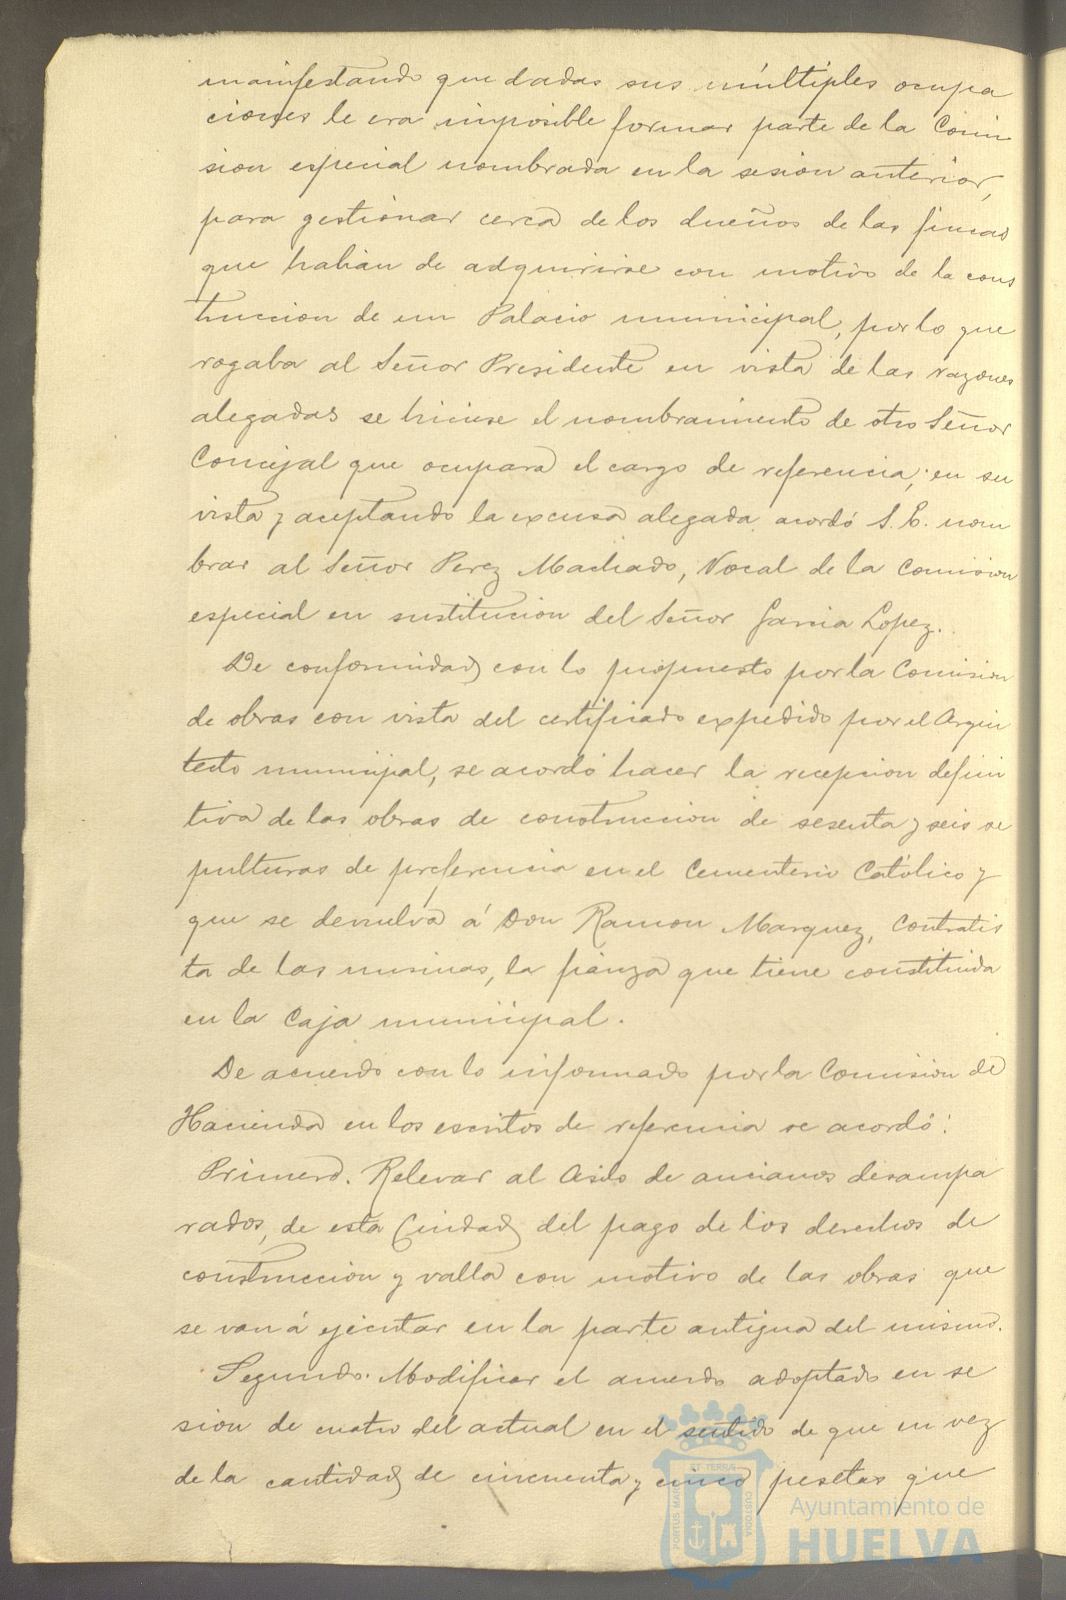 manifestando que dadas sus múltiples ocupa
ciones le era imposible formar parte de la Comi
sion especial nombrada en la sesión anterior,
para gestionar cerca de los dueños de las fincas
que habian de adquirirse con motivo de la cons
truccion de un Palacio municipal, por lo que
rogaba al Señor Presidente en vista de las razones
alegadas se hiciese el nombramiento de otro Señor
Concejal que ocupara el cargo de referencia; en su
vista y aceptando la excusa alegada acordó S. E. nom
brar al Señor Perez Machado, Vocal de la Comision
especial en sustitucion del Señor Garcia Lopez.
De conformidad con lo propuesto por la Comision
de obras con vista del certificado expedido por el Arqui
tecto municipal, se acordó hacer la recepcion defini
tiva de las obras de construccion de sesenta y seis se
pulturas de preferencia en el Cementerio Católico y
que se devuelva á Don Ramon Marquez, contratis
ta de las mismas, la fianza que tiene constituida
en la Caja municipal.
De acuerdo con lo informado por la Comisión de
Hacienda en los escritos de referencia se acordó:
Primero. Relevar al Asilo de ancianos desampa
rados, de esta Ciudad, del pago de los derechos de
construccion y valla con motivo de las obras que
se van á ejecutar en la parte antigua del mismo.
Segundo. Modificar el acuerdo adoptado en se
sion de cuatro del actual en el sentido de que en vez
de la cantidad de cincuenta y cinco pesetas que
PORTUS MARIS ET TERRAE CUSTODIA
Ayuntamiento de
HUELVA